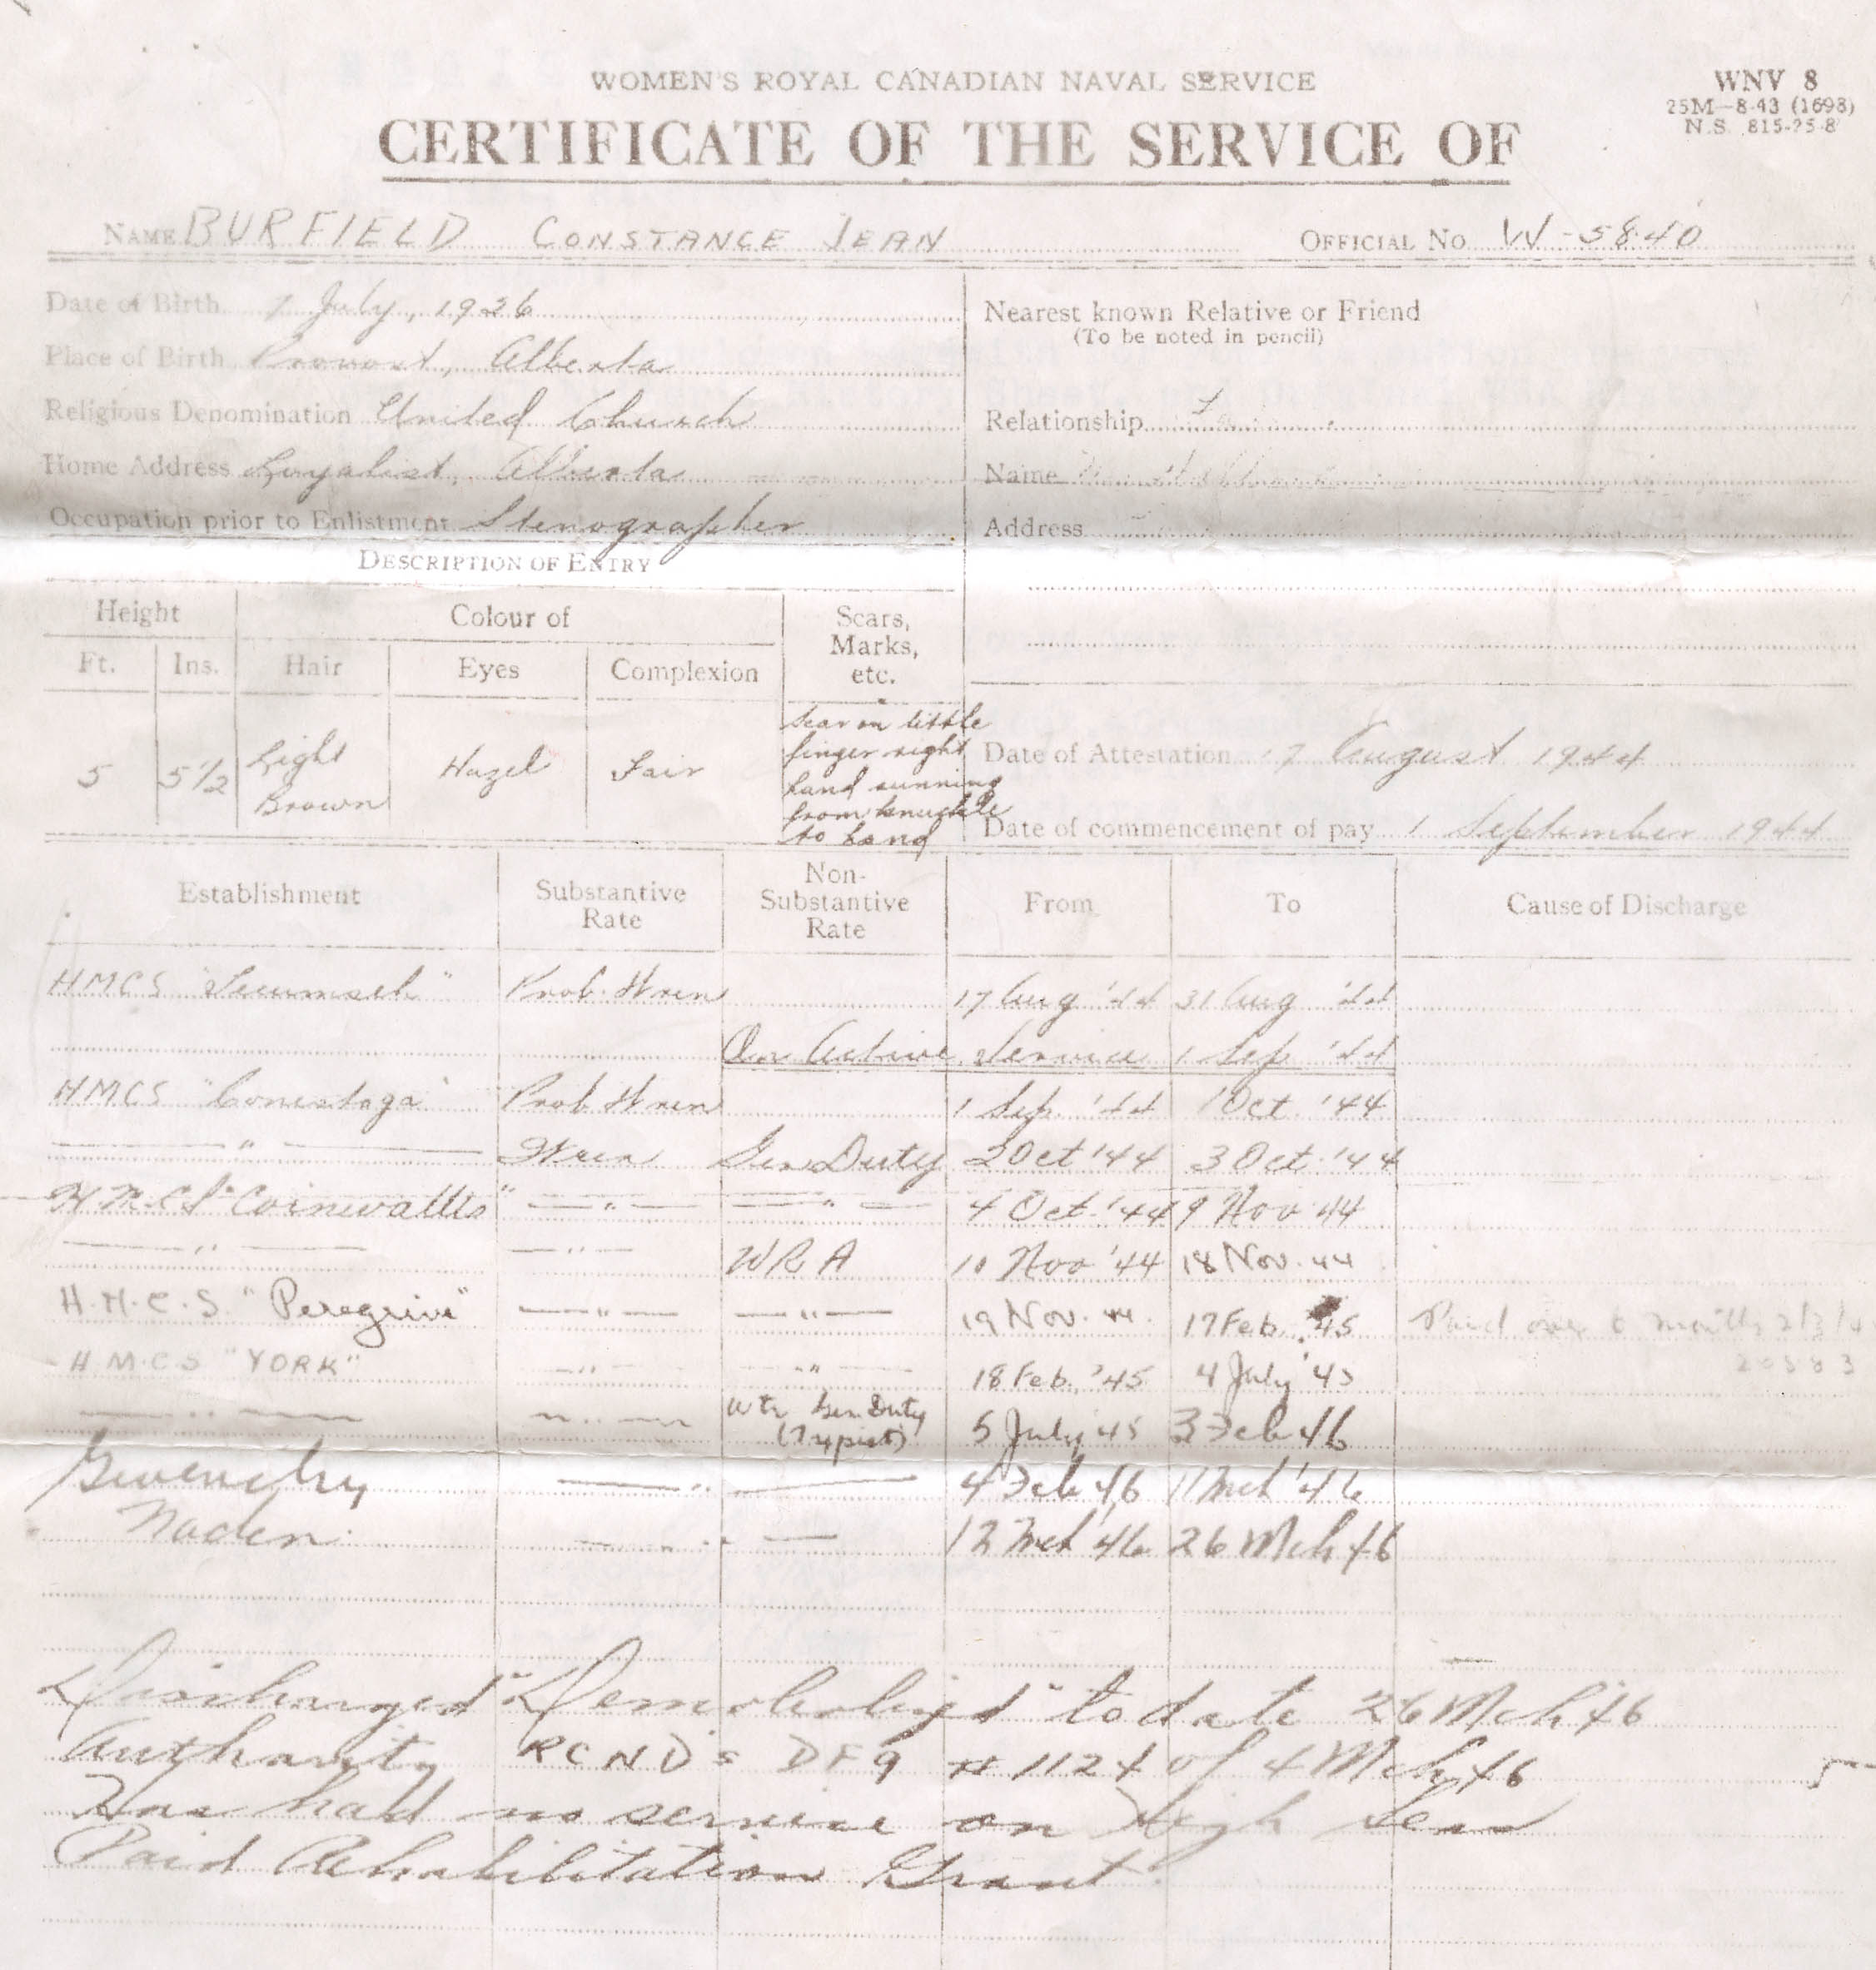 WOMEN'S ROYAL CANADIAN NAVAL SERVICE
WNV 8
25M-8-43 (1698)
N.S. 815-25-8
CERTIFICATE OF THE SERVICE OF
NAME BURFIELD CONSTANCE JEAN OFFICIAL NO. W-5840
Date of Birth July, 1926
Place of Birth Provost, Alberta
Religious Denomination United Church
Home Address Loyalist, Alberta
Occupation prior to Enlistment Stenographer
Nearest known Relative or Friend
(To be noted in pencil)
Relationship
Name
Address
DESCRIPTION OF ENTRY
Height Colour of Scars, Marks, etc.
Ft. Ins. Hair Eyes Complexion
5 5 1/2 Light Brown Hazel Fair
Scar on little
finger right
hand running
from knuckle
to hand
Date of Attestation 17 August 1944
Date of commencement of pay 1 September 1944
Establishment Substantive Rate Non-Substantive Rate From To Cause of Discharge
HMCS "Tecumseh" Prob. Wren 17 Aug '44 31 Aug '44
On Active Service 1 Sep '44
HMCS "Conestoga" Prob. Wren 1 Sep. '44 1 Oct. '44
" Wren Gen Duty 2 Oct '44 3 Oct. '44
H.M.C.S "Cornwallis" " " 4 Oct. '44 9 Nov 44
" " WRA 10 Nov '44 18 Nov. 44
H.M.C.S. "Peregrine" " " 19 Nov. 44. 17 Feb. '45 Paid over 6 months
20583
H.M.C.S "YORK" " " 18 Feb. '45 4 July '45
" " Wtr Gen Duty (Typist) 5 July '45 3 Feb 46
Givenchy " 4 Feb 46 11 Mch '46
Naden " 12 Mch '46 26 Mch 46
Discharged "Demobolized" to date 26 Mch 46
Authority RCND's DF9 # 1124 of 4 Mch 46
Has had no service on High Seas
Paid Rehabilitation Grant.